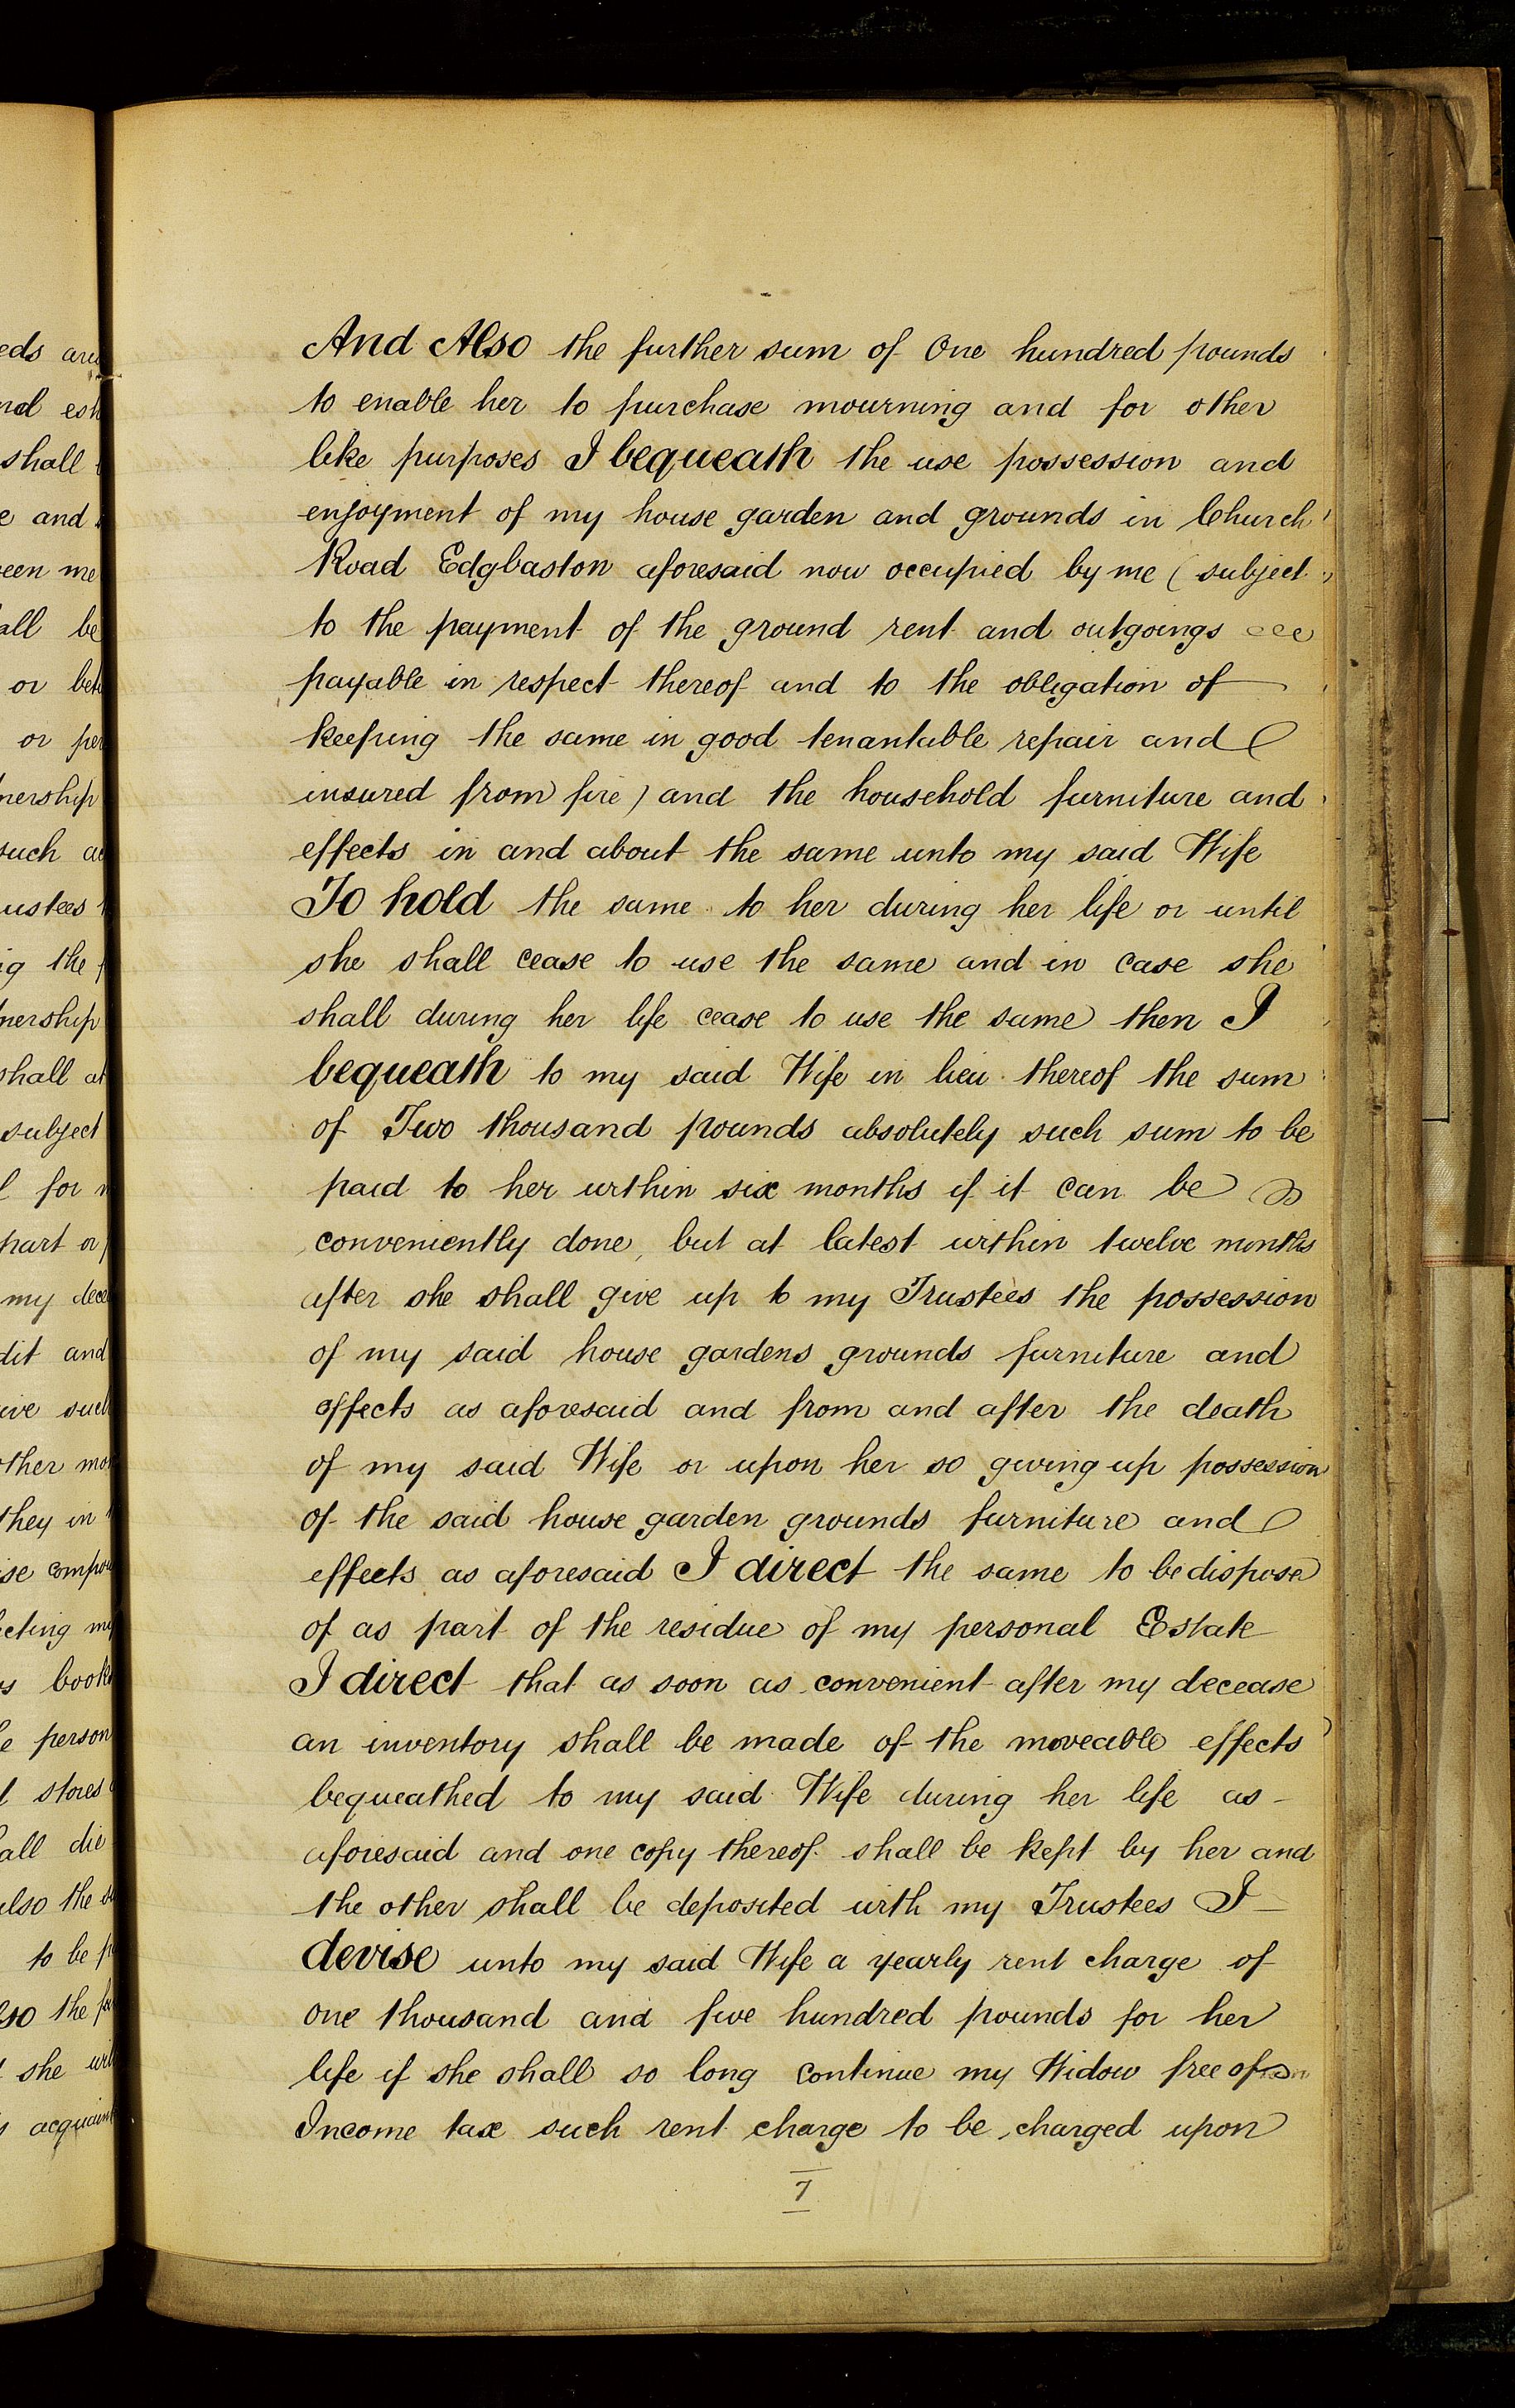 eds
nd
shall
and
een me
all be
or
or
nership
such
ustees
the
nership
shall
subject
for
part or
my
dit and
ive
ther
they in
se
cting
book
person
stores
all die
also the
to be
so the
she
And Also the further sum of One hundred pounds
to enable her to purchase mourning and for other
like purposes I bequeath the use possession and
enjoyment of my house garden and grounds in Church
Road Edgbaston aforesaid now occupied by me (subject
to the payment of the ground rent and outgoings
payable in respect thereof and to the obligation of
keeping the same in good tenantable repair and
insured from fire) and the household furniture and
effects in and about the same unto my said Wife
To hold the same to her during her life or until
she shall cease to use the same and in case she
shall during her life cease to use the same then I
bequeath to my said Wife in lieu thereof the sum
of Two thousand pounds absolutely such sum to be
paid to her within six months if it can be
conveniently done, but at latest within twelve months
after she shall give up to my Trustees the possession
of my said house gardens grounds furniture and
effects as aforesaid and from and after the death
of my said Wife or upon her so giving up possession
of the said house garden grounds furniture and
effects as aforesaid I direct the same to be dispose
of as part of the residue of my personal Estate
I direct that as soon as convenient after my decease
an inventory shall be made of the moveable effects
bequeathed to my said Wife during her life as
aforesaid and one copy thereof shall be kept by her and
the other shall be deposited with my Trustees I
devise unto my said Wife a yearly rent charge of
one thousand and five hundred pounds for her
life if she shall so long continue my Widow free of
Income tax such rent charge to be charged upon
7